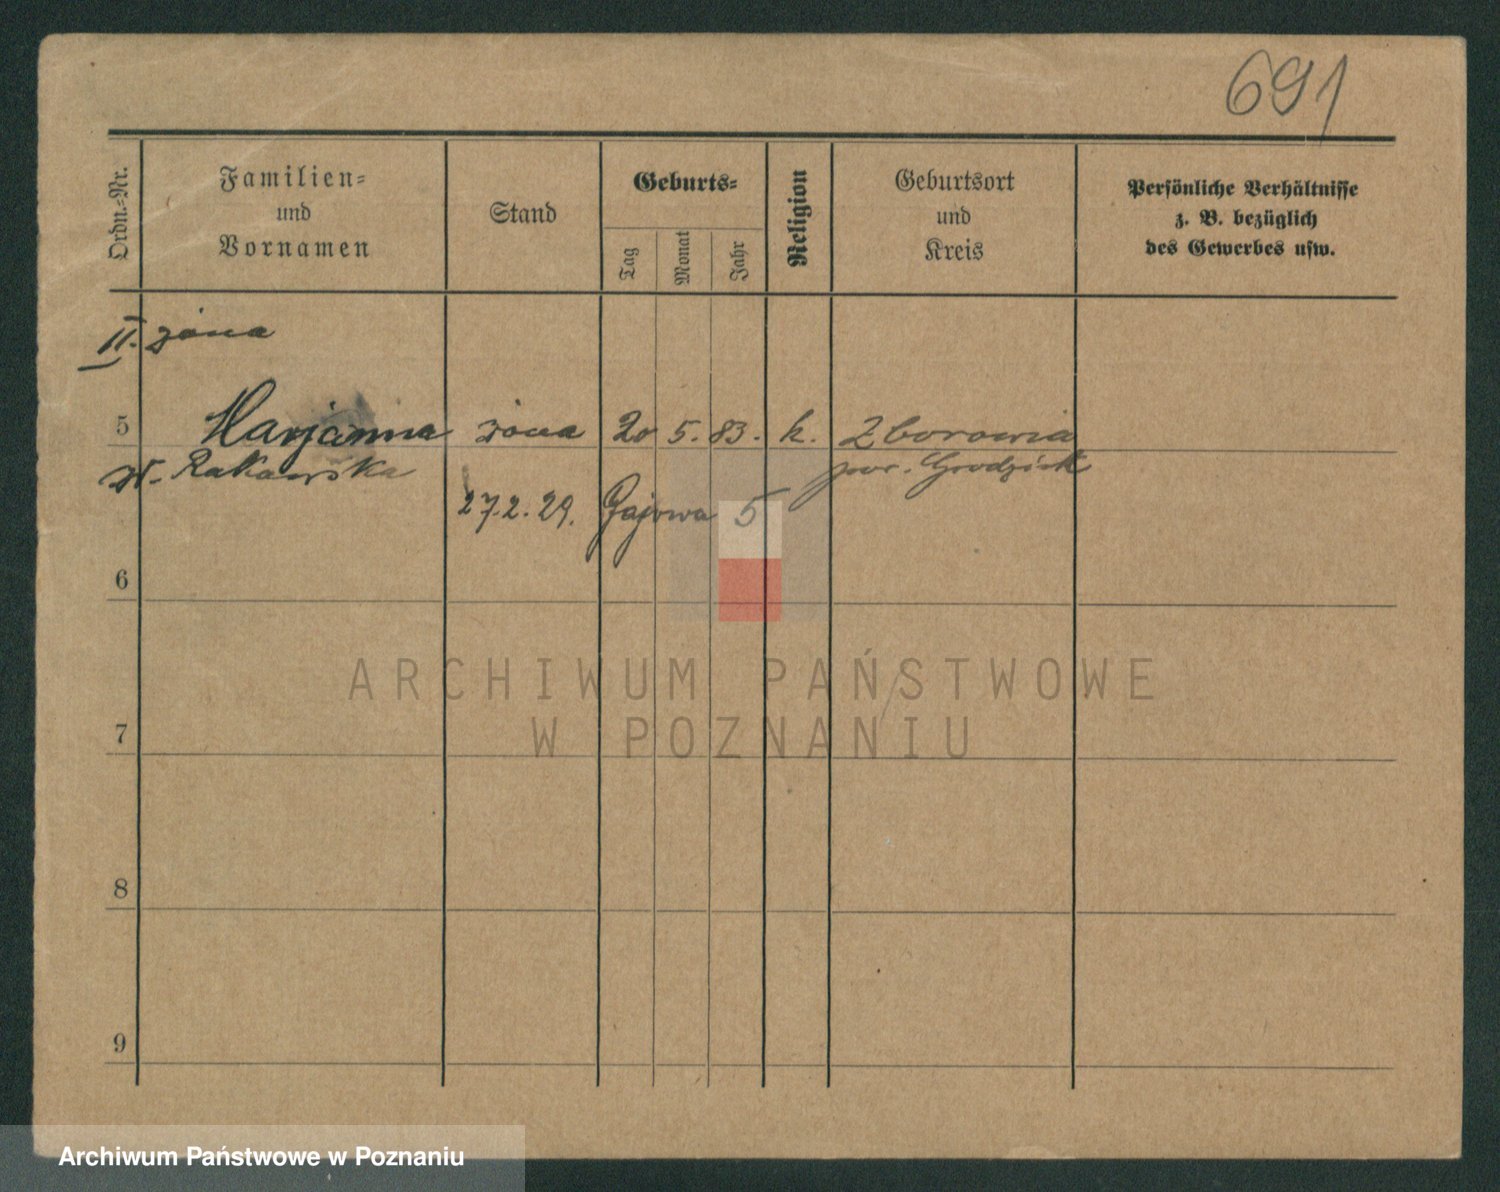 691
Ordn.-Nr.
Familien-
und
Vornamen
Stand
Geburts-
Tag
Monat
Jahr
Religion
Geburtsort
und
Kreis
Persönliche Verhältnisse
z. B. bezüglich
des Gewerbes usw.
II. żona
5 Marjanna żona 20 5. 83. k. Zborowia
Rakowska pow. Grodzisk
27.2.29. Gajowa 5
6
ARCHIWUM PAŃSTWOWE
W POZNANIU
7
8
9
Archiwum Państwowe w Poznaniu